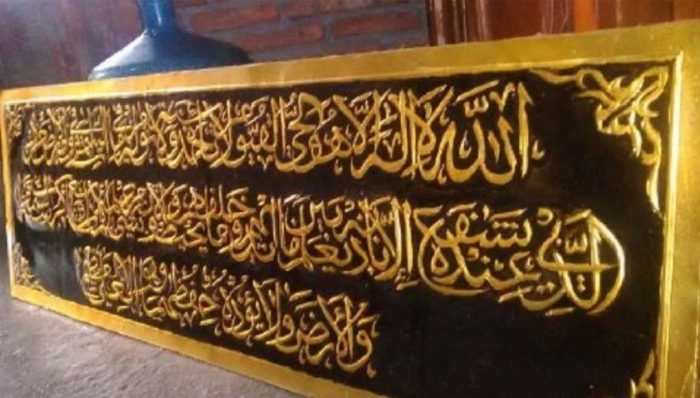 الله لا إله إلا هو الحي القيوم لا تأخذه سنة ولا نوم له ما في السموات وما في الأرض
الذي يشفع عنده إلا بإذنه يعلم ما بين أيديهم وما خلفهم ولا يحيطون بشيء كرسيه
والأرض ولا يؤده حفظهما وهو العلي العظيم